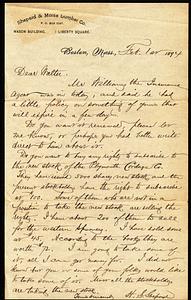 Shepard & Morse Lumber Co.
MASON BUILDING. 7 LIBERTY SQUARE.
Boston, Mass., Feb. 1st 1894
Dear Walter
Mr. Wellburn the Insurance
Agent was in today, and said he had
a little policy, or something of yours that
will expire in a few days.
Do you want it renewed, please let
me know, or perhaps you had better write
direct to him about it.
Do you want to buy any rights to subscribe to
the new stock of the Plymouth Cordage Co.
They have issued 5000 shares new stock, and the
present stockholders have the right to subscribe
at 100. Some of them who are not in a
position to take the new stock, are selling the
rights. I have about 200 of them to sell
for the various
at 45. According to the books they are
worth 72. If you want to take some of
it, all I can get money for. I did not
know but you or some of your folks would like
to take some of it. Nearly all the stockholders
are taking the new stock.